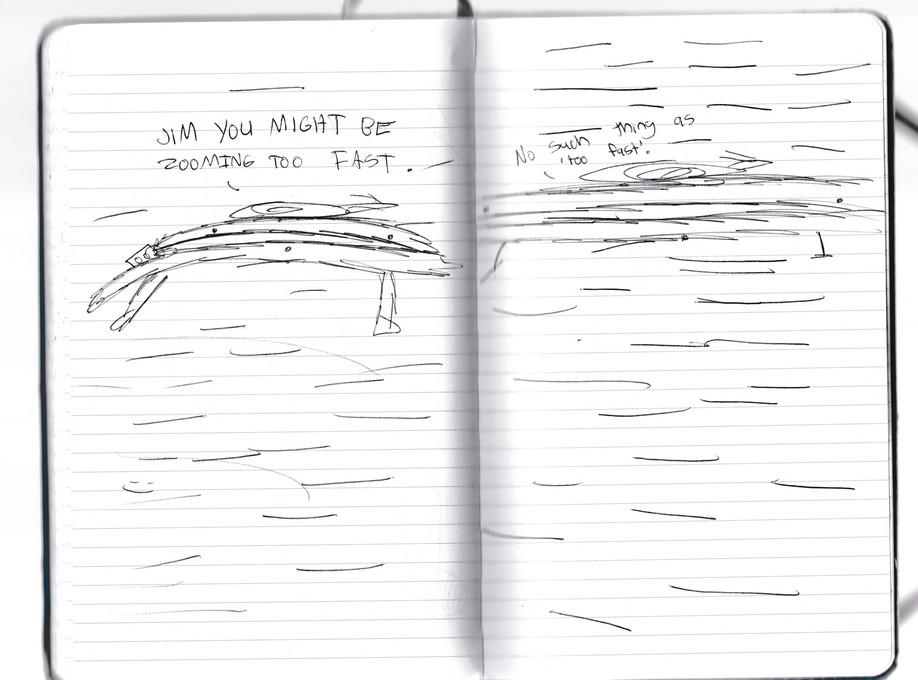 JIM YOU MIGHT BE
ZOOMING TOO FAST.
No such thing as
'too fast'.